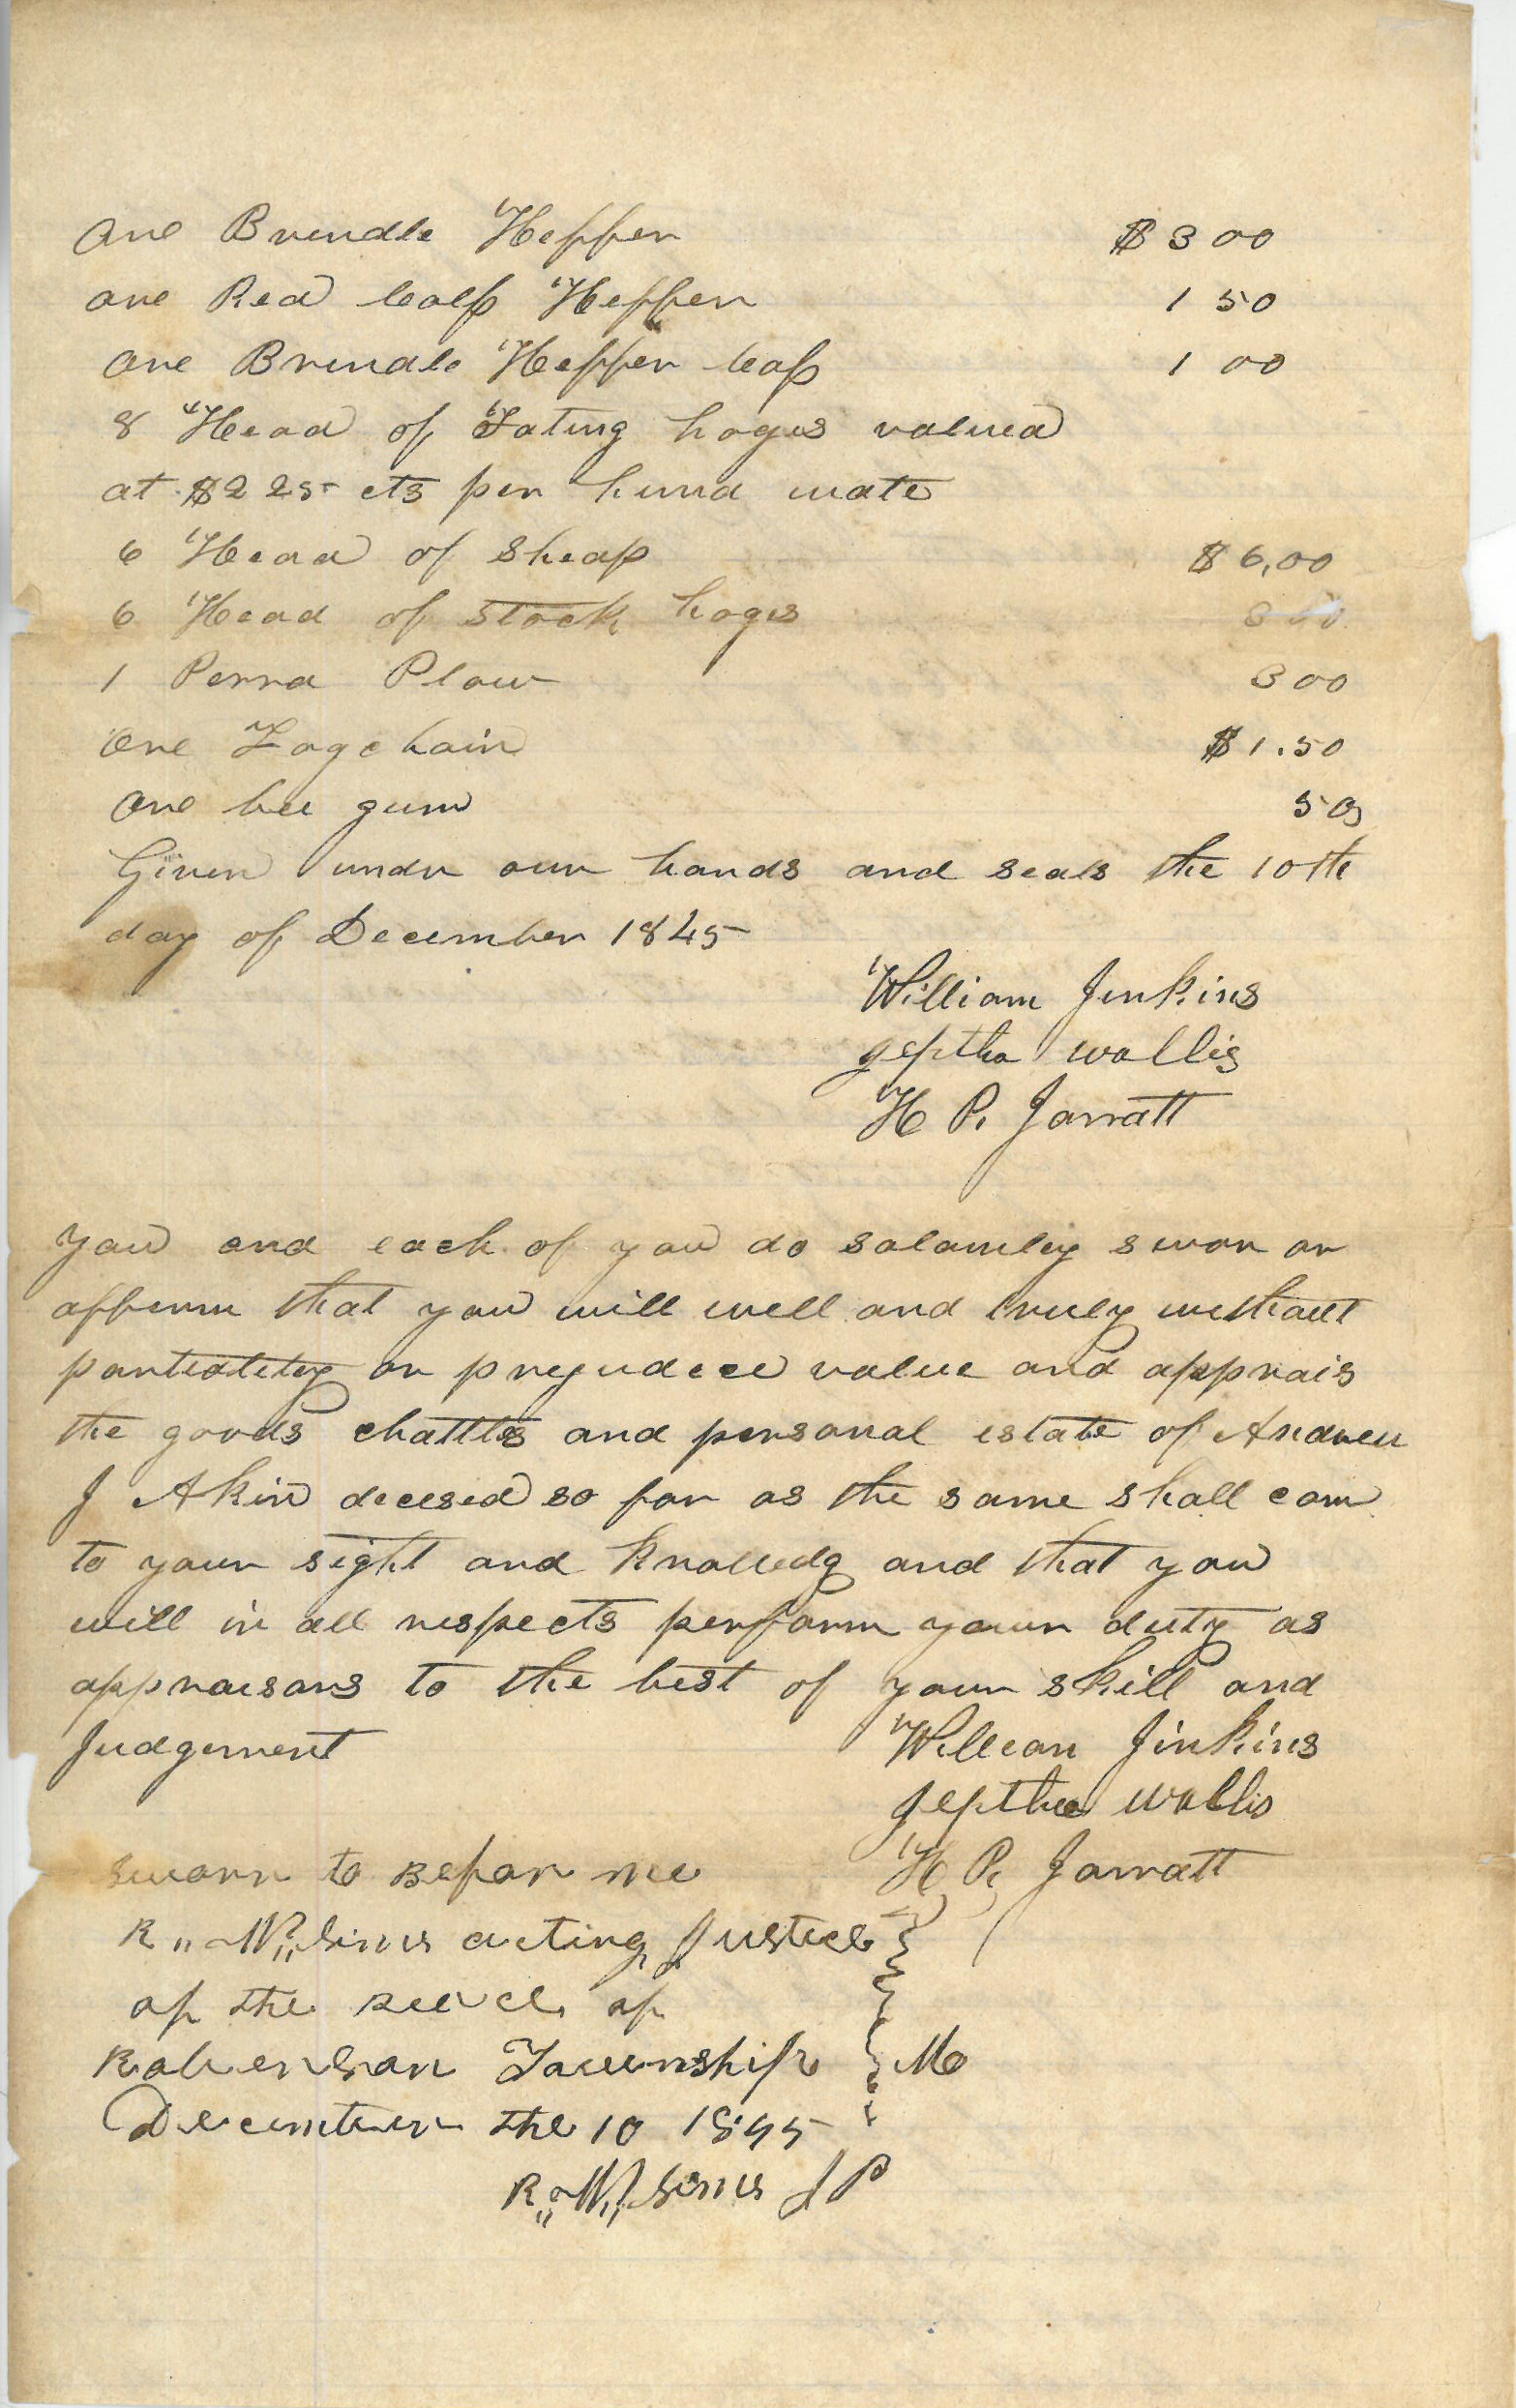 one Brindle Heffer $3 00
one Red Calf Heffer 1 50
one Brindle Heffer Caf 1 00
8 Head of Fating hogus valued
at $2 25 cts per hund wate
6 Head of Sheap $6,00
6 Head of stock hogs
1 Perra Plow 300
one Logchain $1.50
one bee gum 50
Given undr our hands and seals the 10th
day of December 1845
William Jenkins
Jeptha wallis
H P. Jarratt
you and each of you do solamley swor or
afferm that you will well and truly without
partiolitey or prejudice value and apprais
the goods chattles and personal estate of Andrew
J Akin decesed so far as the same shall com
to your sight and knolledg and that you
will in all respects perform your duty as
appraisors to the best of your skill and
Judgement
Willean Jinkins
Jepthae wallis
H P. Jarratt
sworn to Befor me
R,, W,, Sims acting Justice
of the peace of
Roberson Township Mo
December the 10 1845
R,, W,, Sims J P